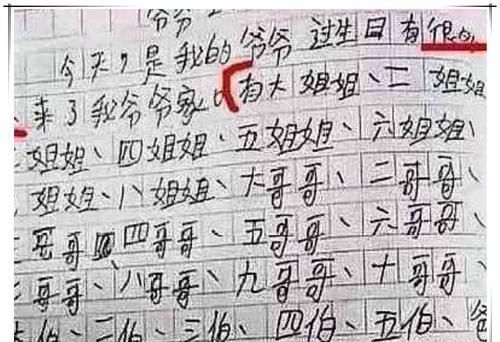 爷爷
今天,是我的爷爷 过生日 有很
来了我爷爷家 有大 姐姐、二 姐姐
姐姐、四姐姐、五姐姐、六姐姐、
姐姐、八姐姐、大哥哥、二哥哥、
三哥哥 四哥哥、五哥哥、六哥哥、
哥哥、八哥哥、九哥哥、十哥哥、
大伯、二伯、三伯、四伯、五伯、